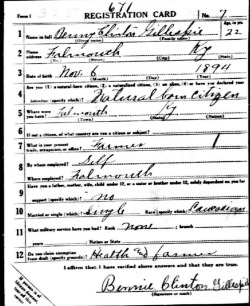 Form 1
671
REGISTRATION CARD
No. 7
1 Name in full Benny Clinton Gillespie
(Given name) (Family name)
Age, in yrs. 22
2 Home address Falmouth Ky
3 Date of birth Nov. 6 1894
4 Are you (1) a natural-born citizen, (2) a naturalized citizen, (3) an alien, (4) or have you declared your intention (specify which)?
Natural born citizen
5 Where were you born? Falmouth Ky
6 If not a citizen, of what country are you a citizen or subject?
7 What is your present trade, occupation, or office? Farmer 1
8 By whom employed? Self
Where employed? Falmouth
9 Have you a father, mother, wife, child under 12, or a sister or brother under 12, solely dependent on you for support (specify which)? no
10 Married or single (which)? Single Race (specify which)? Caucasian
11 What military service have you had? Rank none ; branch
years ; Nation or State
12 Do you claim exemption from draft (specify grounds)? Health & farmer
I affirm that I have verified above answers and that they are true.
Bennie Clinton Gillespi
(Signature or mark)